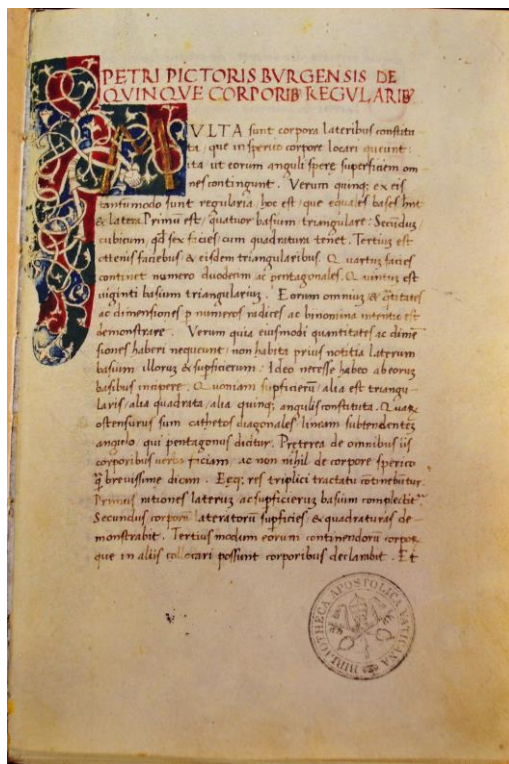 PETRI PICTORIS BVRGENSIS DE
QVINQVE CORPORIB REGVLARIB
MVLTA sunt corpora lateribus constitu
ta, que in sperico corpore locari queunt:
ita ut eorum anguli spere superficiem om
nes contingunt. Verum quinq; ex eis
tantumodo sunt regularia, hoc est, que equales bases hñt
& latera. Primũ est, quatuor basium triangulare: Secũdus,
cubicum, qđ sex facies, cum quadratura tenet. Tertius est
octenis faciebus, & eisdem triangularibus. Quartus facies
continet numero duodecim ac pentagonales. Quintus est
uiginti basium triangularius. Eorum omniuz &
ac dimensiones p numeros radices ac binomina intentio est
demonstrare. Verum quia eiusmodi quantitates ac dimẽ
siones haberi nequeunt, non habita prius notitia laterum
basium illoruz & supficierum: Ideo necesse habeo ab eoruz
basibus incipere. Quoniam supficierũ, alia est triangu-
laris, alia quadrata, alia quinq; angulis constituta. Quar
ostensurus sum cathetos diagonales, lineam subtendentez
angulo, qui pentagonus dicitur. Preterea de omnibus iis
corporibus verba faciam, ac non nihil de corpore sperico
q̃ breuissime dicam. Ecq; res triplici tractatu cõtinebũtur.
Primus rationes lateruz, ac supficieruz basium complectit~
Secundus corporũ lateratorũ supficies, & quadraturas de-
monstrabit. Tertius modum eorum continendorũ corpor
que in aliis collocari possunt corporibus declarabit. Et
BIBLIOTHECA APOSTOLICA VATICANA